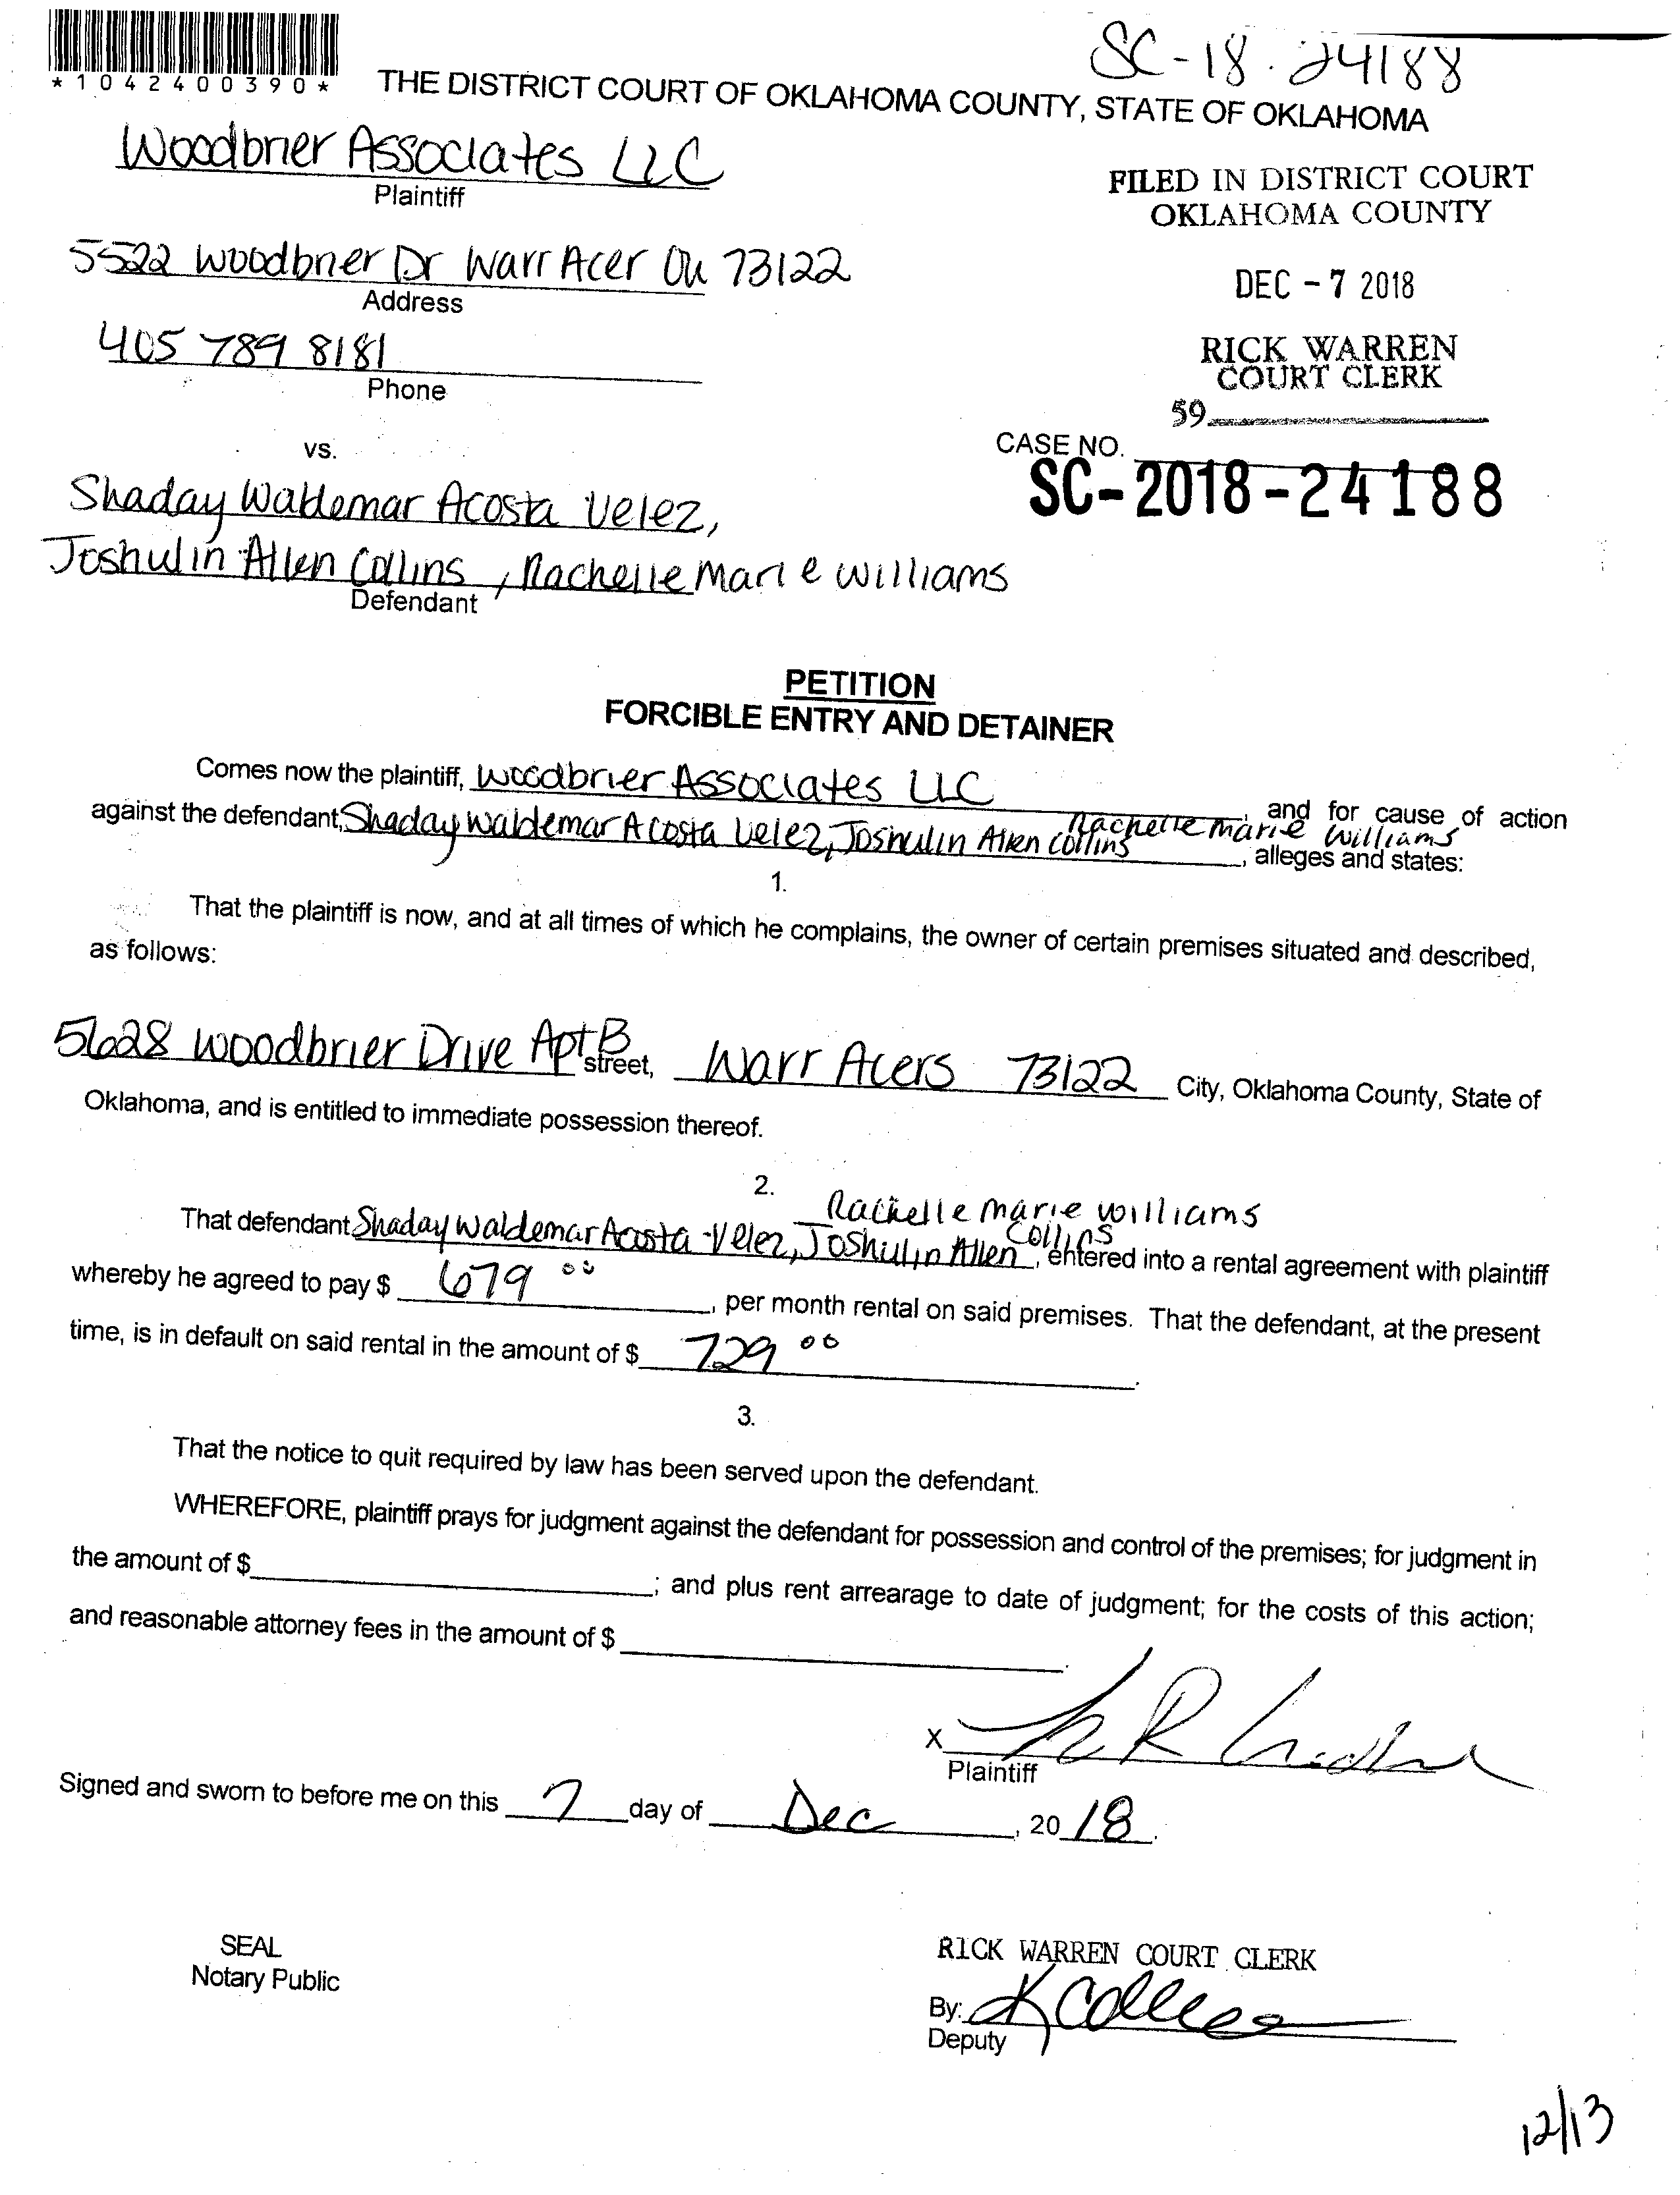 SC-18-24188
*1042400390*
THE DISTRICT COURT OF OKLAHOMA COUNTY, STATE OF OKLAHOMA
Woodbrier Associates LLC
Plaintiff
FILED IN DISTRICT COURT
OKLAHOMA COUNTY
5522 Woodbrier Dr Warr Acer OK 73122
Address
DEC - 7 2018
405 789 8181
Phone
RICK WARREN
COURT CLERK
59
vs.
CASE NO.
SC-2018-24188
Shaday Waldemar Acosta Velez,
Joshulin Allen Collins, Rachelle Marie Williams
Defendant
PETITION
FORCIBLE ENTRY AND DETAINER
Comes now the plaintiff, Woodbrier Associates LLC, and for cause of action
against the defendant, Shaday Waldemar Acosta Velez, Joshulin Allen Collins Rachelle Marie Williams, alleges and states:
1.
That the plaintiff is now, and at all times of which he complains, the owner of certain premises situated and described,
as follows:
5628 Woodbrier Drive Apt B street, Warr Acers 73122 City, Oklahoma County, State of
Oklahoma, and is entitled to immediate possession thereof.
2.
Rachelle Marie Williams
That defendant Shaday Waldemar Acosta-Velez, Joshulin Allen Collins, entered into a rental agreement with plaintiff
whereby he agreed to pay $ 679 00, per month rental on said premises. That the defendant, at the present
time, is in default on said rental in the amount of $ 729 00.
3.
That the notice to quit required by law has been served upon the defendant.
WHEREFORE, plaintiff prays for judgment against the defendant for possession and control of the premises; for judgment in
the amount of $ ; and plus rent arrearage to date of judgment; for the costs of this action;
and reasonable attorney fees in the amount of $ .
X
Plaintiff
Signed and sworn to before me on this 7 day of Dec, 2018.
SEAL
Notary Public
RICK WARREN COURT CLERK
By:
Deputy
12/13